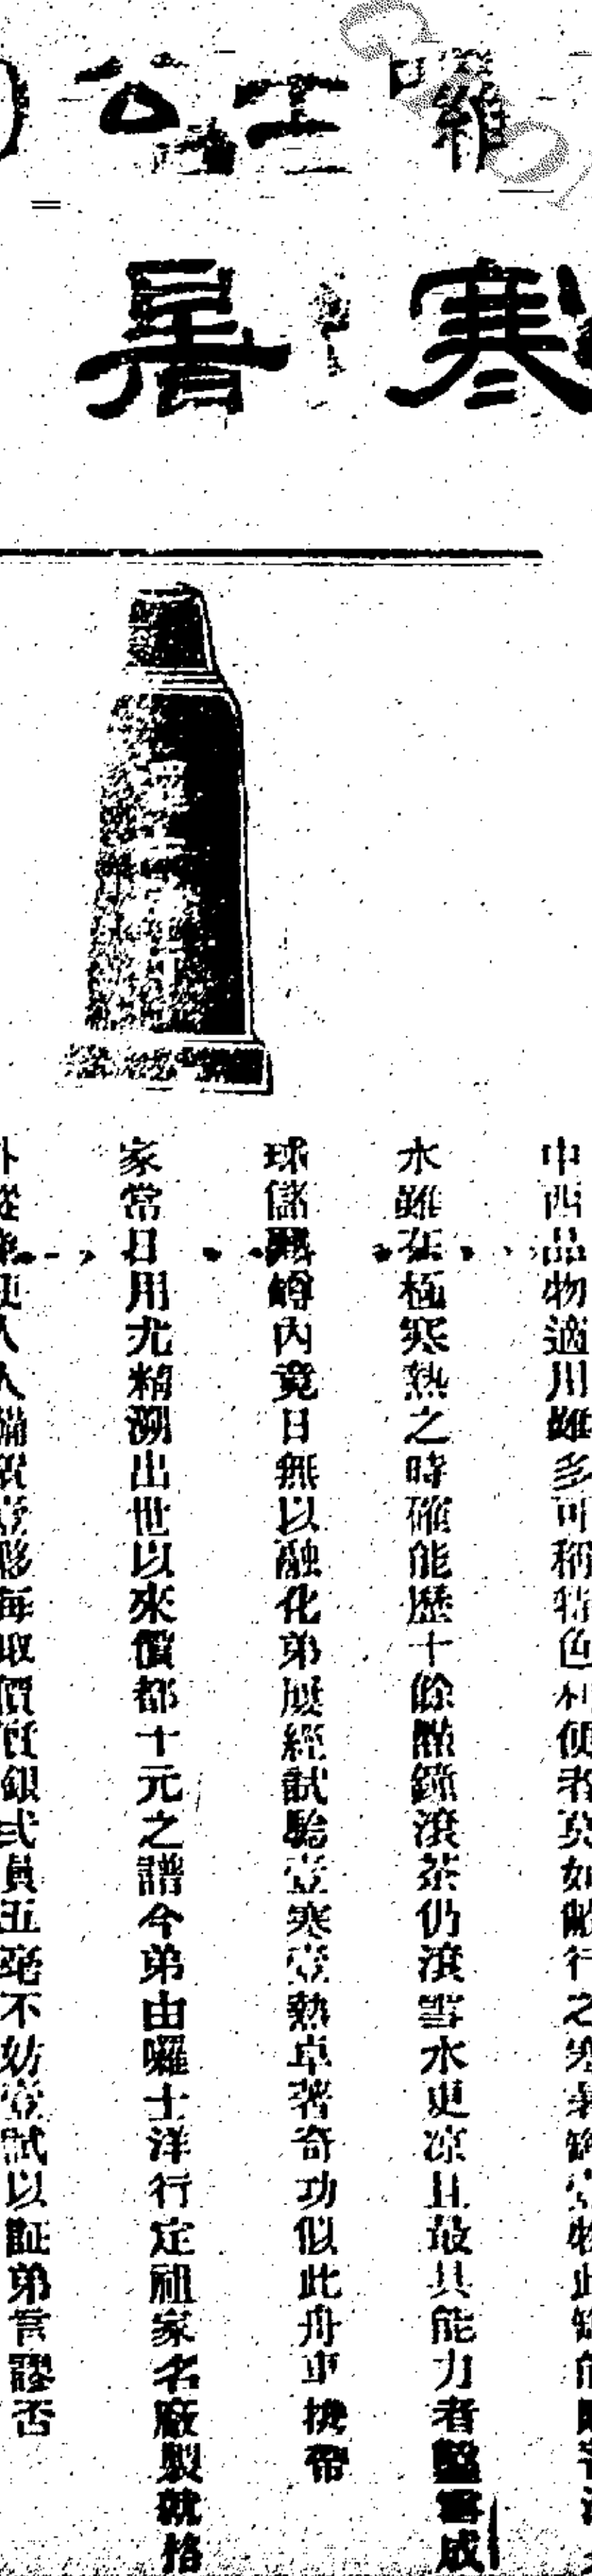 囉士公
寒暑
中西品物適用雖多可稱特色利便者莫如敝行之寒暑
水雖在極寒熱之時確能歷十餘點鐘滾茶仍滾雪水更凉且最具能力者盤雪成
球儲罇內竟日無以融化弟屢經試驗壹寒壹熱卓著奇功似此舟車携帶
家常日用尤稱溯出世以來價都十元之譜今弟由囉士洋行定祖家名廠製就格
外從 人人備 每取價 銀弍員五毫不妨壹試以証弟言謬否